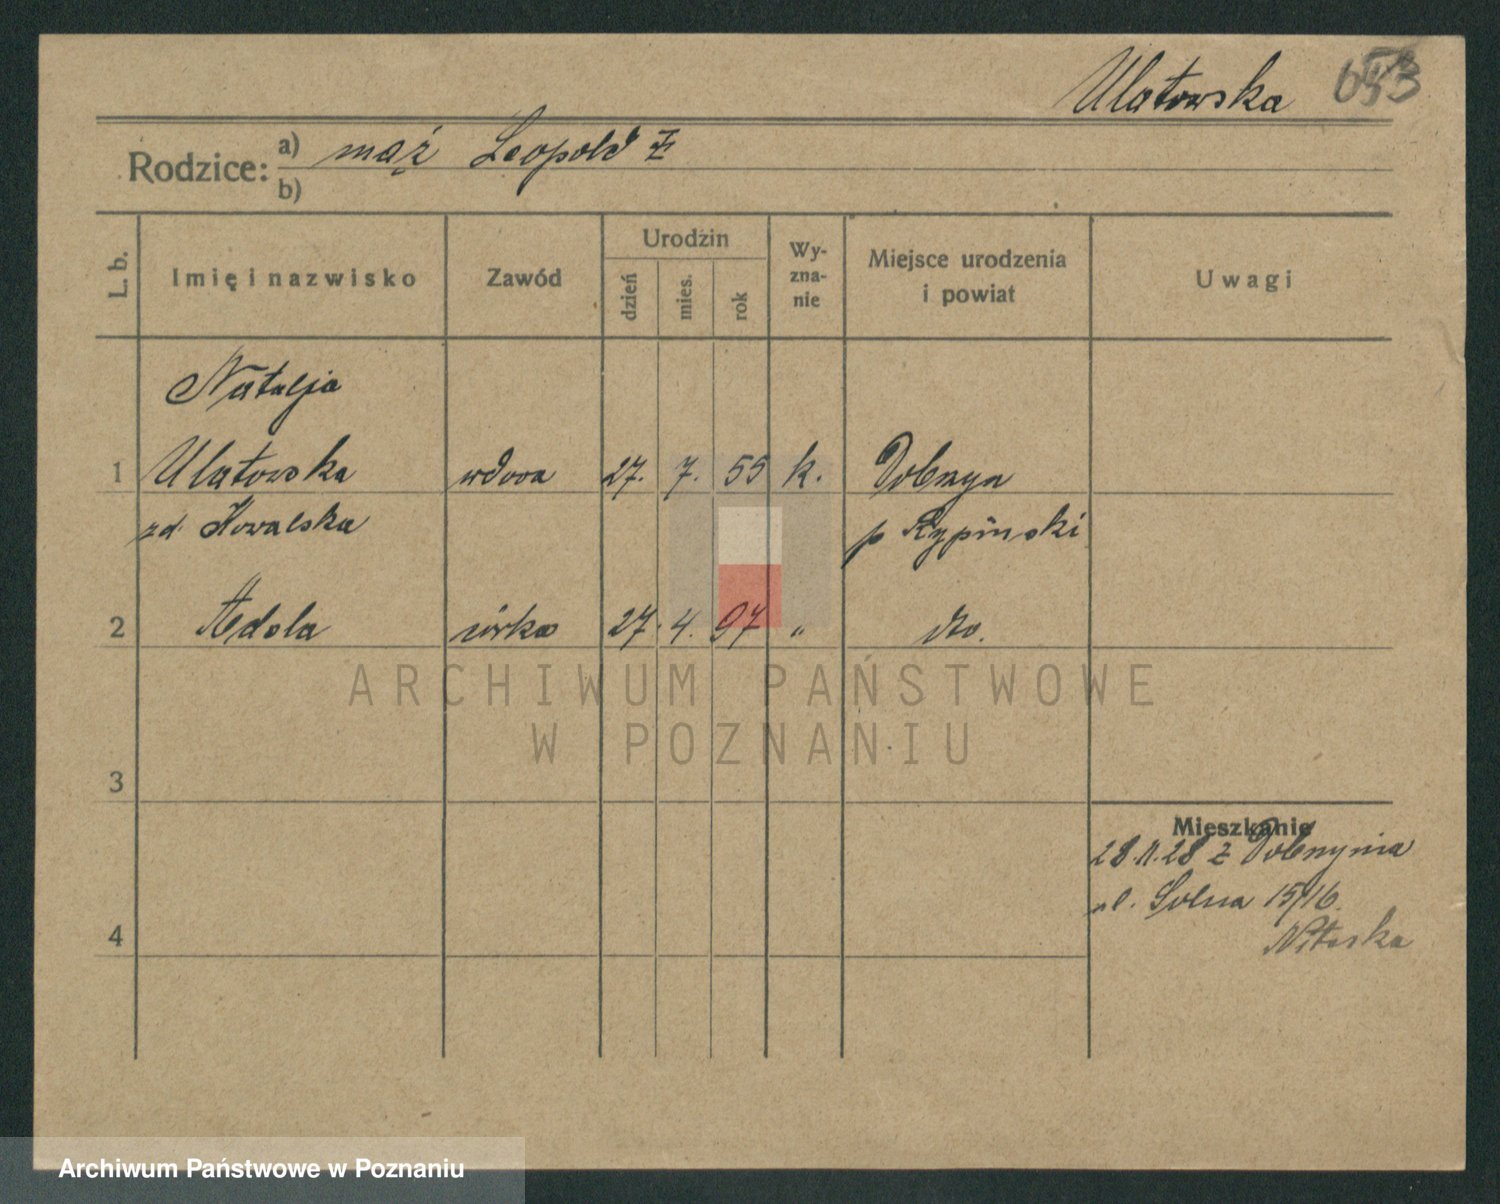 Ulatowska 653
Rodzice: a) mąż Leopold Z
b)
L. b. Imię i nazwisko Zawód Urodzin dzień mies. rok Wy-zna-nie Miejsce urodzenia i powiat Uwagi
Natalja
1 Ulatowska wdowa 27. 7. 55 k. Dobrzyn
zd. Kowalska p Rypinski
2 Adela córka 27. 4. 97 " dto.
ARCHIWUM PAŃSTWOWE
W POZNANIU
3
Mieszkanie
28.11.28 z Dobrzynia
ul. Solna 15/16.
4
Archiwum Państwowe w Poznaniu